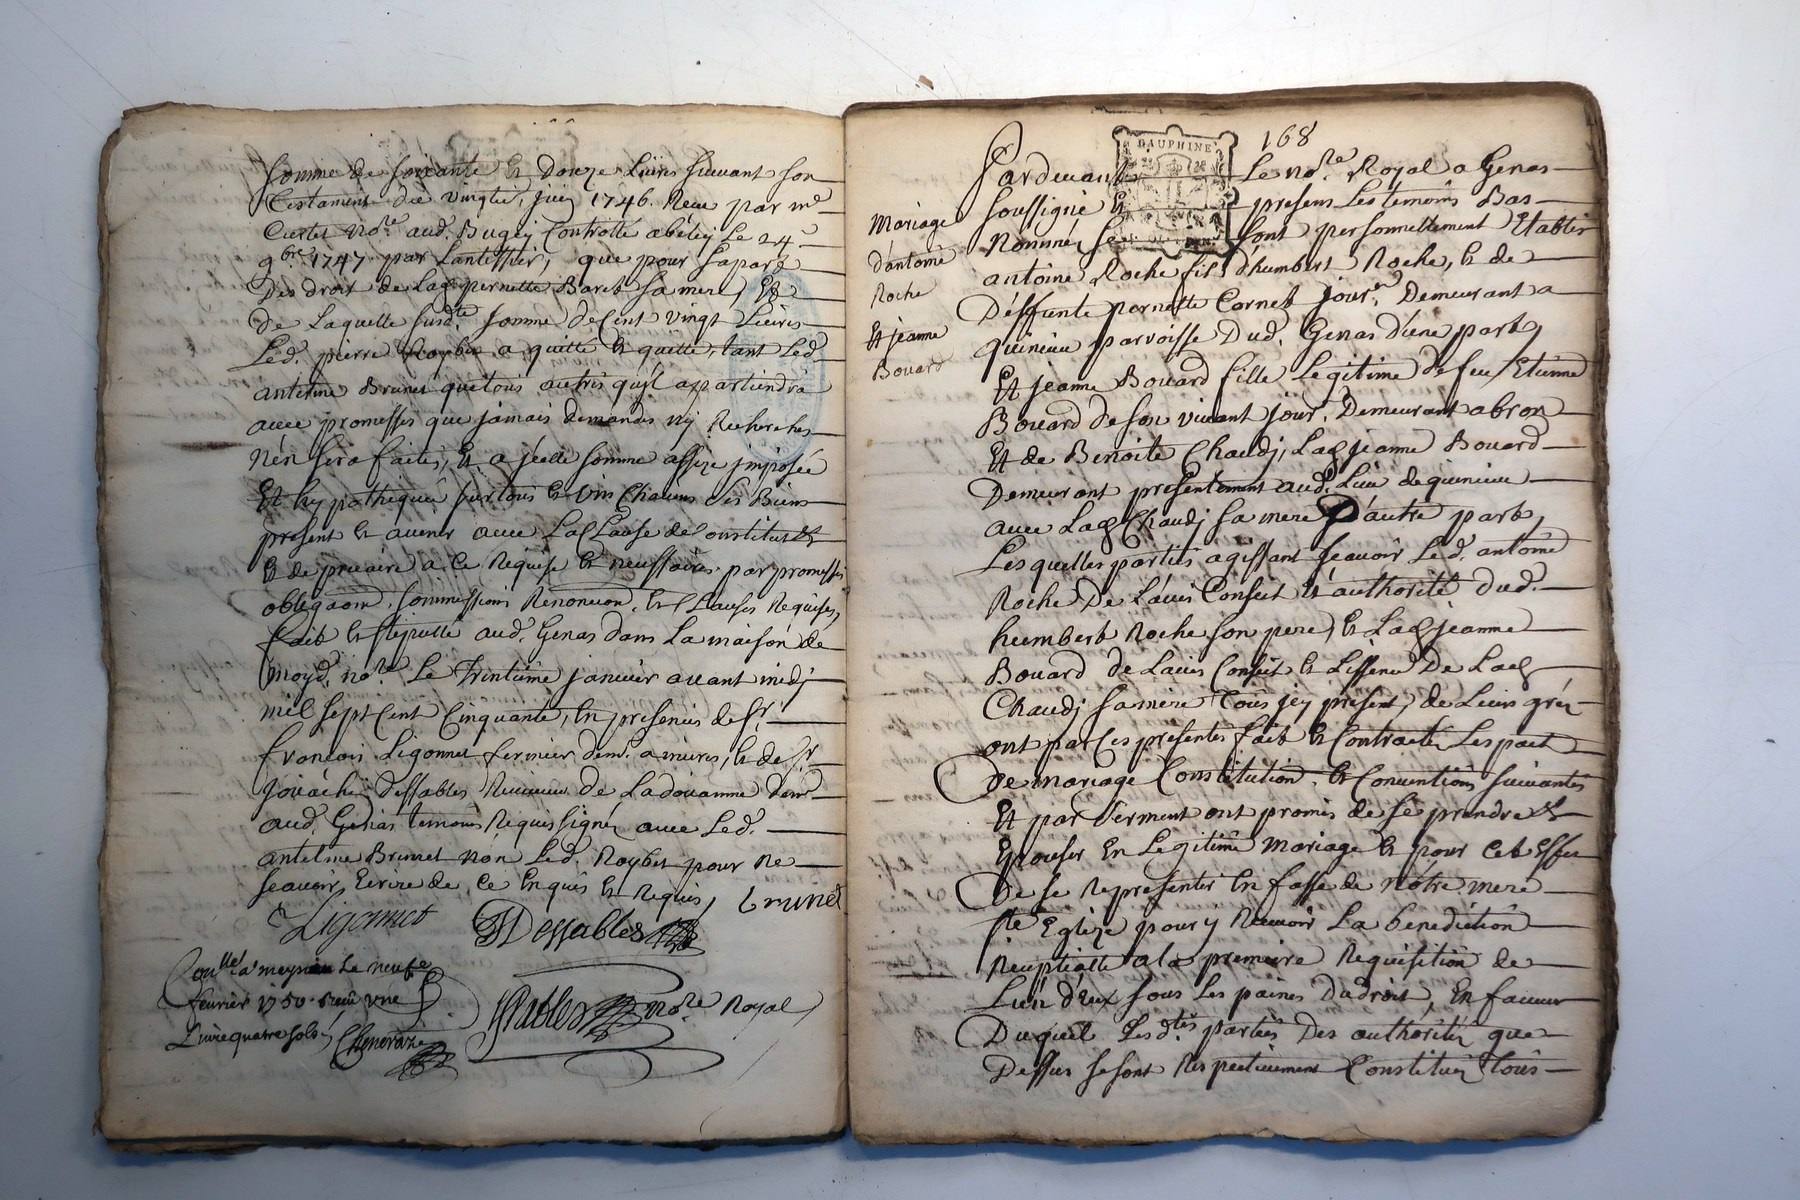 somme de soixante et douze Livres suivant son
Testament du vingtie. juin 1746. Receu par me
Cuctet No.re aud. Bugey Controllé abeley Le 24e
9bre 1747 par Lantessier, que pour sa part
Des droit de Lad. pernette Baret sa mere, Et
de Laquelle susd.te somme de Cent vingt Livres
Led. pierre Roybet a quitté et quitte, tant Led.
antelme Brunet que tous autres qu'jl appartiendra
avec promesses que jamais demandes ny Recherches
N'en sera faites, Et a jcelle somme assize jmposée
Et hypothequée sur tous et Vns Chacuns ses Biens
present et avenir avec La Clause de Constitut
et de precaire a Ce Requise et neussaires par promesses
obligaõn. soummissions Renonciaõn. et Clauses Requises,
fait et stipullé aud. Genas dans La maison de
moyd. no.re Le Trentième janvier avant midj
mil sept Cent Cinquante, En presences de Sr.
francois Ligonnet fermier dem.t a mures, et de Sr
Joüachin Dessables Receveur de La doüanne dem.t
aud. Genas temoins Requis signés avec Led.
antelme Brunet non Led. Roybet pour ne
scavoir Ecrire de Ce Enquis et Requis, brunet
Ligonnet JDessables
Con.llé a meyzieu Le neufe
fevrier 1750. Receu vne
Livre quatre sols
no.re Royal
168
DAUPHINE
Pardevant Le no.re Royal a Genas
soussigné Et presens Les temoins Bas
Nommés se sont personnellement Etablis
antoine Roche fils d'humbert Roche, et de
Déffunte pernette Cornet jour.er Demeurant a
quinieu parroisse Dud. Genas d'une part,
Et jeanne Bouard fille Legitime de feu Etienne
Bouard de son vivant jour. Demeurant a bron
Et de Benoite Chaudj, Lad. jeanne Bouard
Demeurant presentement aud. Lieu de quinieu
avec Lad. Chaudj sa mere D'autre part,
Les quelles parties agissant scavoir Led. antoine
Roche De L'avis Conseil et authorité dud.
humbert Roche son pere, et Lad. jeanne
Bouard de Lavis Conseil et Lissence De Lad.
Chaudj sa mere Tous jcy présent, de Leurs gréz
ont par Ces présentes fait et Contracté Les pact
De mariage Constitution et Conventions suivantes
Et par serment ont promis de se prendre et
Epouser En Legitime mariage et pour Cet Effet
De se Representer En fasse de nôtre mere
ste Eglize pour y Recevoir La benediction
Nuptialle a la premiere Requisition de
L'un d'Eux sous Les paines Du droit, En faveur
Duquel Les d.tes parties Des authorités que
Dessus se sont Respectivement Constitués tous
Mariage
d'antoine
Roche
Et jeanne
Bouard